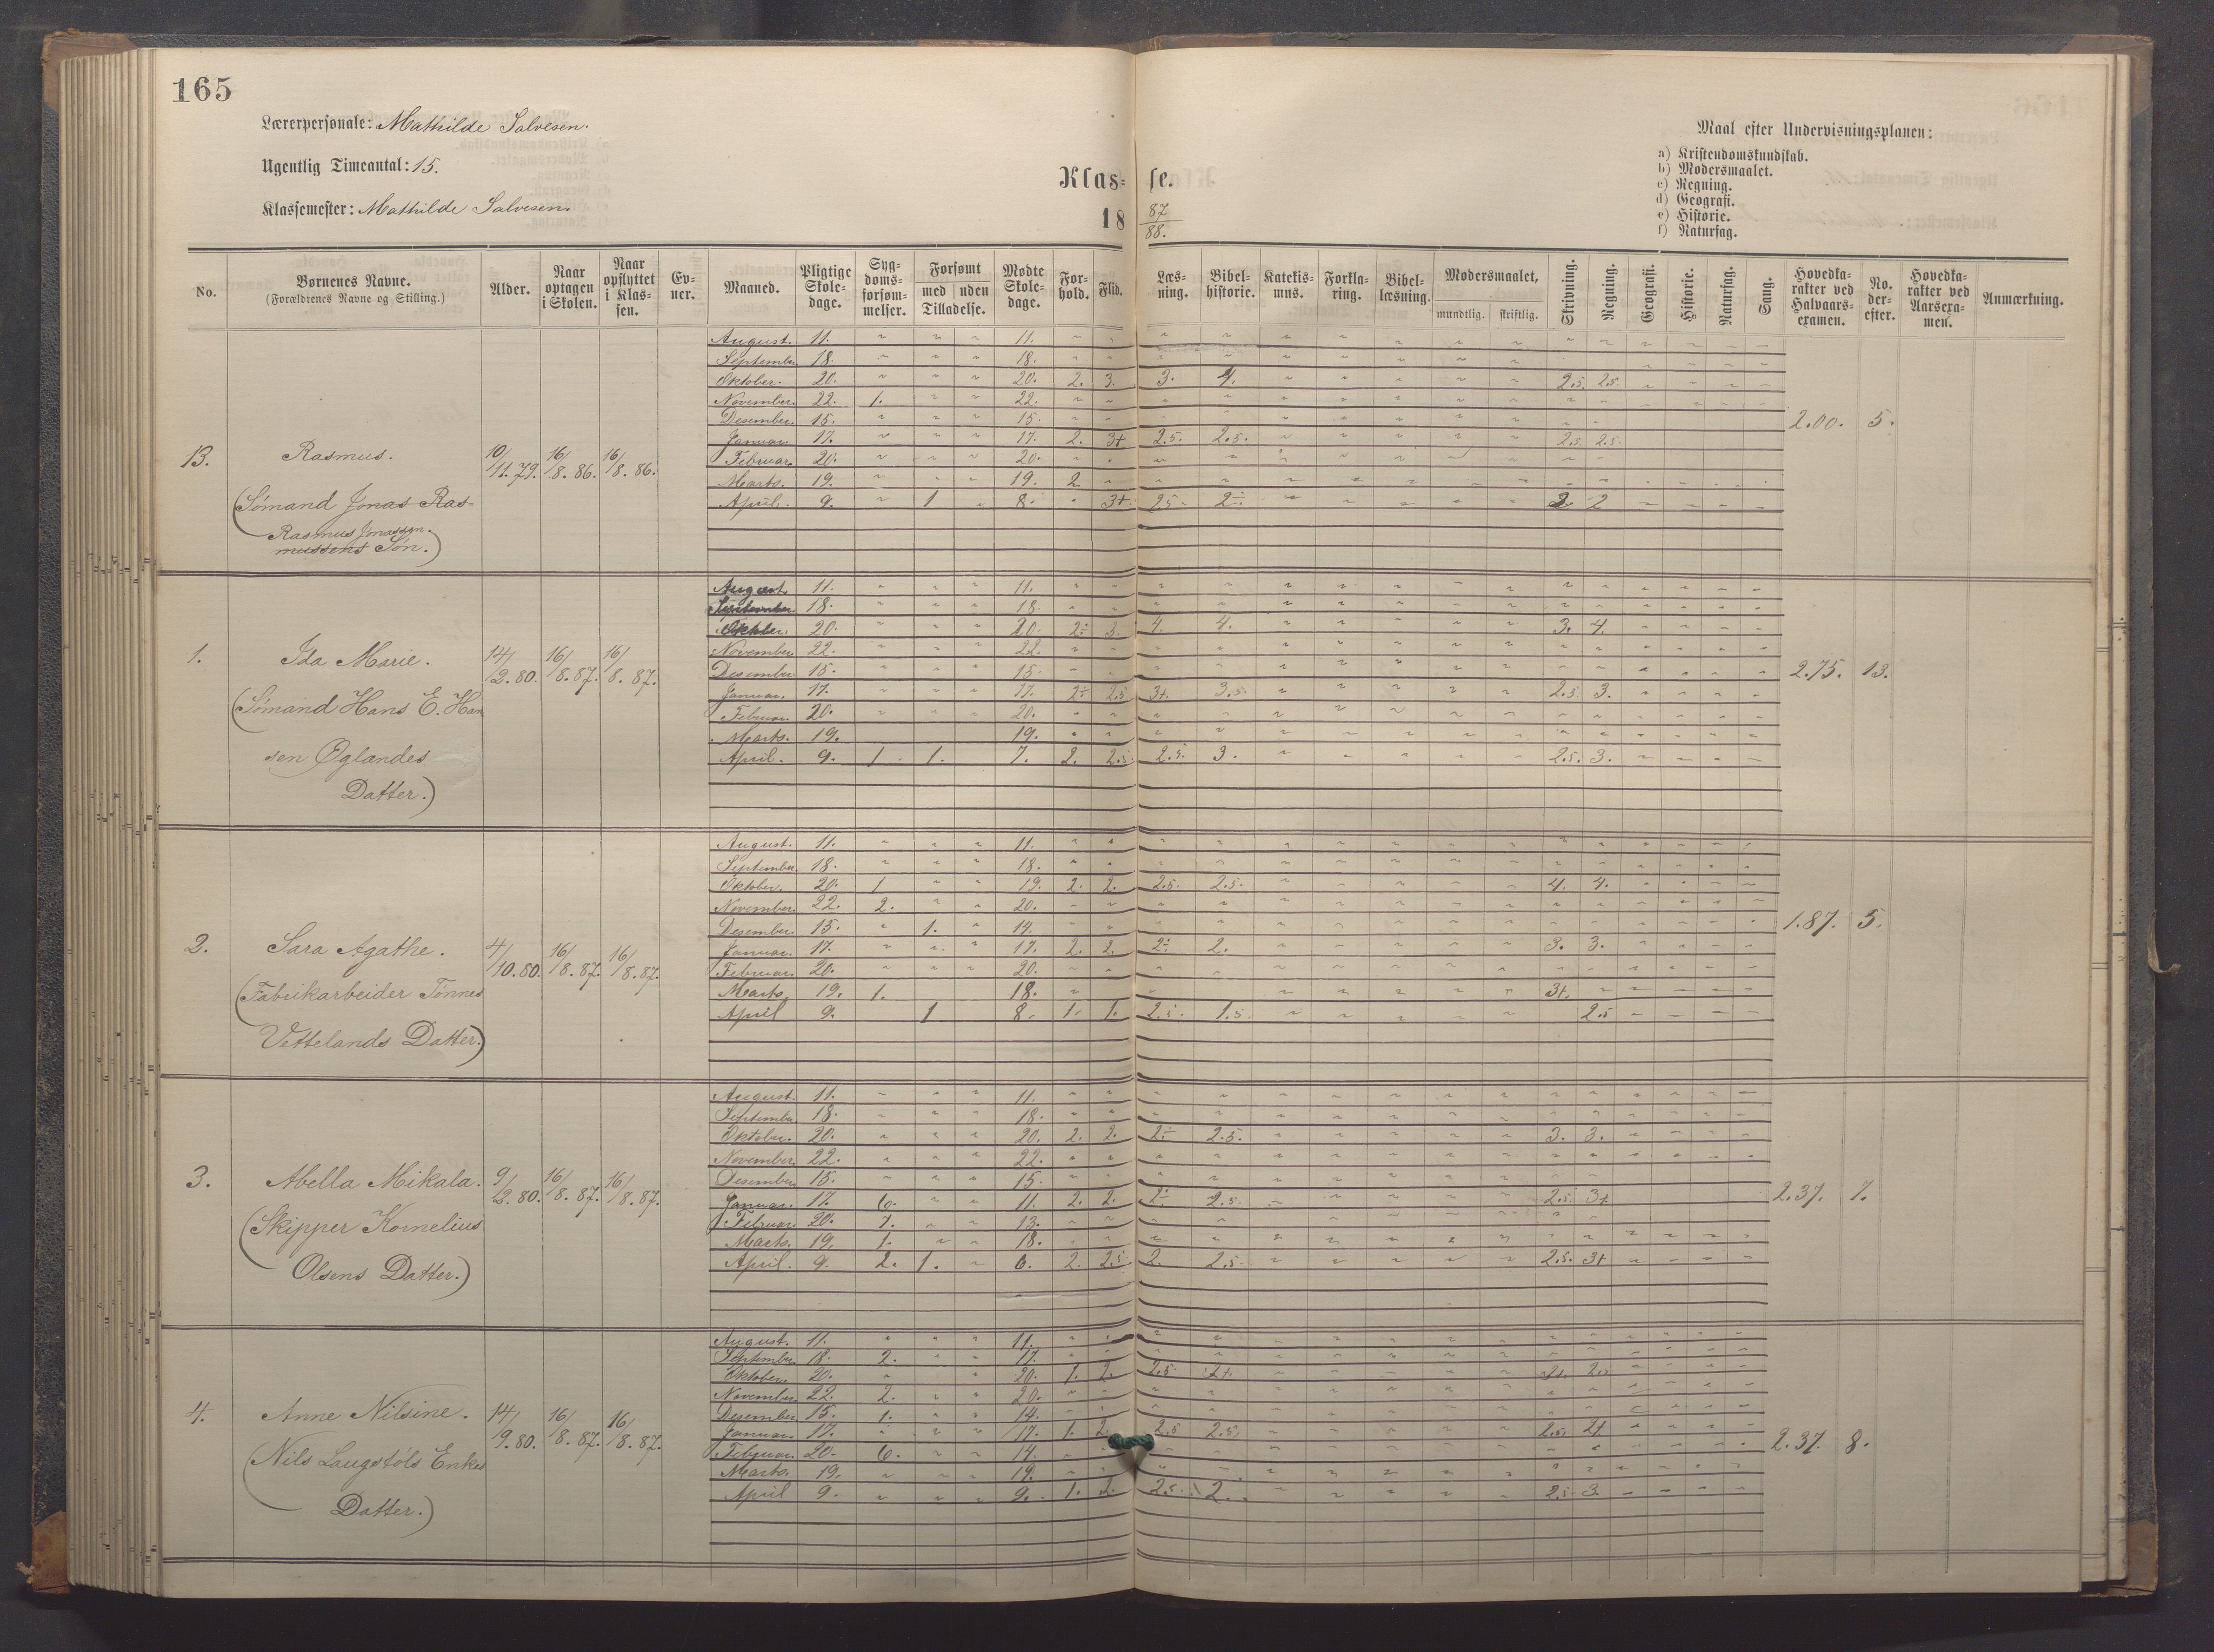 165
Lærerpersonale: Mathilde Salvesen.
Ugentlig Timeantal: 15.
Klassemester: Mathilde Salvesen.
Klas= se.
18 87/88.
Maal efter Undervisningsplanen:
a) Kristendomskundskab.
b) Modersmaalet.
c) Regning.
d) Geografi.
e) Historie.
f) Naturfag.
No. Børnenes Navne. (Forældrenes Navne og Stilling.) Alder. Naar optagen i Skolen. Naar opflyttet i Klassen. Evner. Maaned. Pligtige Skoledage. Sygdomsforsømmelser. Forsømt med uden Tilladelse. Mødte Skoledage. Forhold. Flid. Læsning. Bibelhistorie. Katekismus. Forklaring. Bibellæsning. Modersmaalet, mundtlig. skriftlig. Skrivning. Regning. Geografi. Historie. Naturfag. Sang. Hovedkarakter ved Halvaarsexamen. No. derefter. Hovedkarakter ved Aarsexamen. Anmærkning.
13. Rasmus. 10/11.79. 16/8.86. 16/8.86. 2.00. 5.
(Sømand Jonas Ras-
Rasmus Jonassen.
mussens Søn.)
August. 11. 11.
September 18. 18.
Oktober. 20. 20. 2. 3. 3. 4. 2.5. 2.5.
November. 22. 1. 22.
Desember. 15. 15.
Januar. 17. 17. 2. 3+ 2.5. 2.5. 2.5. 2.5.
Februar. 20. 20.
Marts. 19. 19. 2
April. 9. 1 8. 3+ 2.5. 2÷ 2 2
1. Ida Marie. 14/2.80. 16/8.87. 16/8.87. 2.75. 13.
(Sømand Hans E. Han
sen Øglandes
Datter.)
August. 11. 11.
September. 18. 18.
Oktober. 20. 20. 2÷ 3. 4. 4. 3. 4.
November 22. 22.
Desember 15. 15.
Januar. 17. 17. 2÷ 2.5 3+. 3.5. 2.5 3.
Februar. 20. 20.
Marts. 19. 19.
April. 9. 1. 1. 7. 2. 2.5. 2.5. 3. 2.5. 3.
2. Sara Agathe. 4/10.80. 16/8.87. 16/8.87. 1.87. 5.
(Fabrikarbeider Tønnes
Vettelands Datter.)
August. 11. 11.
September. 18. 18.
Oktober. 20. 1 19. 2. 2. 2.5. 2.5. 4. 4.
November. 22. 2. 20.
Desember. 15. 1. 14.
Januar. 17. 17. 2. 2. 2÷ 2. 3. 3.
Februar. 20. 20.
Marts. 19. 1. 18. 3+.
April 9. 1 8. 1. 1. 2.5. 1.5. 2.5
3. Abella Mikala. 9/2.80. 16/8.87. 16/8.87. 2.37. 7.
(Skipper Kornelius
Olsens Datter.)
August. 11. 11.
September 18. 18.
Oktober. 20. 20. 2. 2. 2÷ 2.5. 3. 3.
November. 22. 22.
Desember 15. 15.
Januar. 17. 6. 11. 2. 2. 2÷ 2.5. 2.5. 3+
Februar. 20. 7. 13.
Marts. 19. 1. 18.
April. 9. 2. 1. 6. 2. 2.5 2. 2.5. 2.5. 3+
4. Anne Nilsine. 14/9.80. 16/8.87. 16/8.87. 2.37. 8.
(Nils Laugstøls Enkes
Datter.)
August. 11. 11.
September 18. 2. 17.
Oktober. 20. 20. 1. 2. 2.5 2+.
November 22. 2. 20.
Desember 15. 1. 14.
Januar. 17. 17. 1. 2. 2.5 2.5. 2.5. 2+
Februar. 20. 6. 14.
Marts. 19. 19.
April 9. 9. 1. 2. 2.5. 2. 2.5 3.